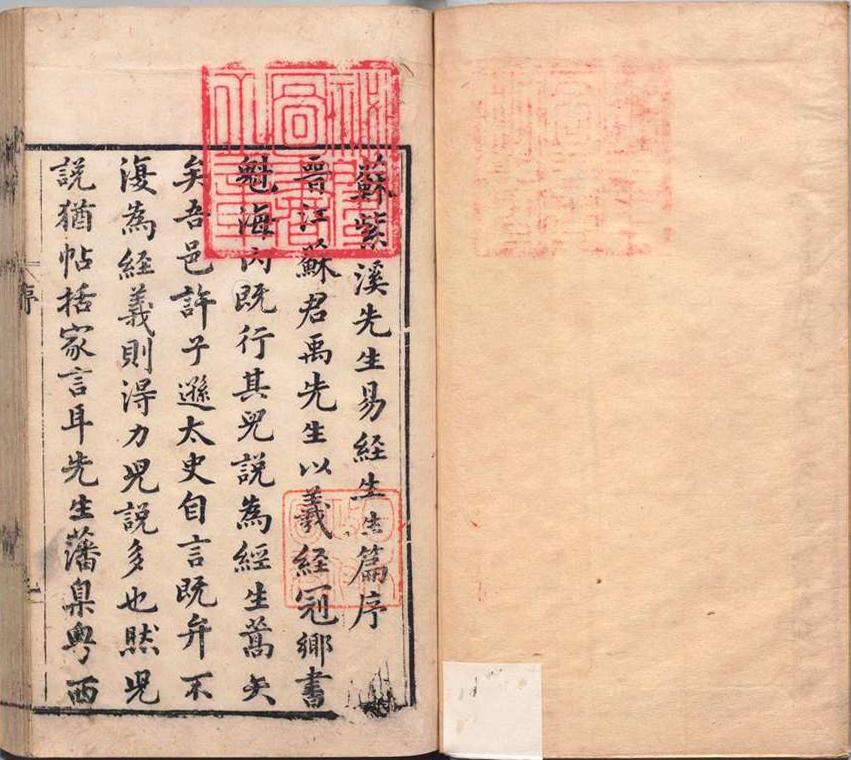 蘇紫溪先生易経生生篇序
晉江蘇君禹先生以羲経冠鄉書
魁海内既行其兒説為經生蒿矢
矣吾邑許子遜太史自言既弁不
復為経義則得力兒説多也然兒
説猶帖括家言耳先生藩臬粤西
序